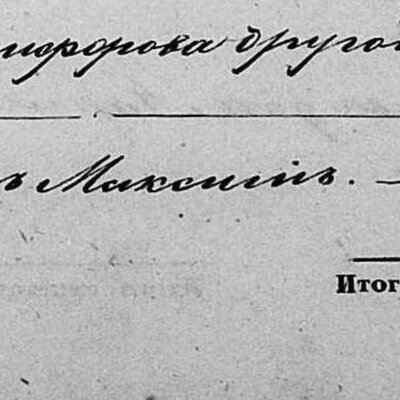 нифорова другой
ъ Максимъ. —
Итог